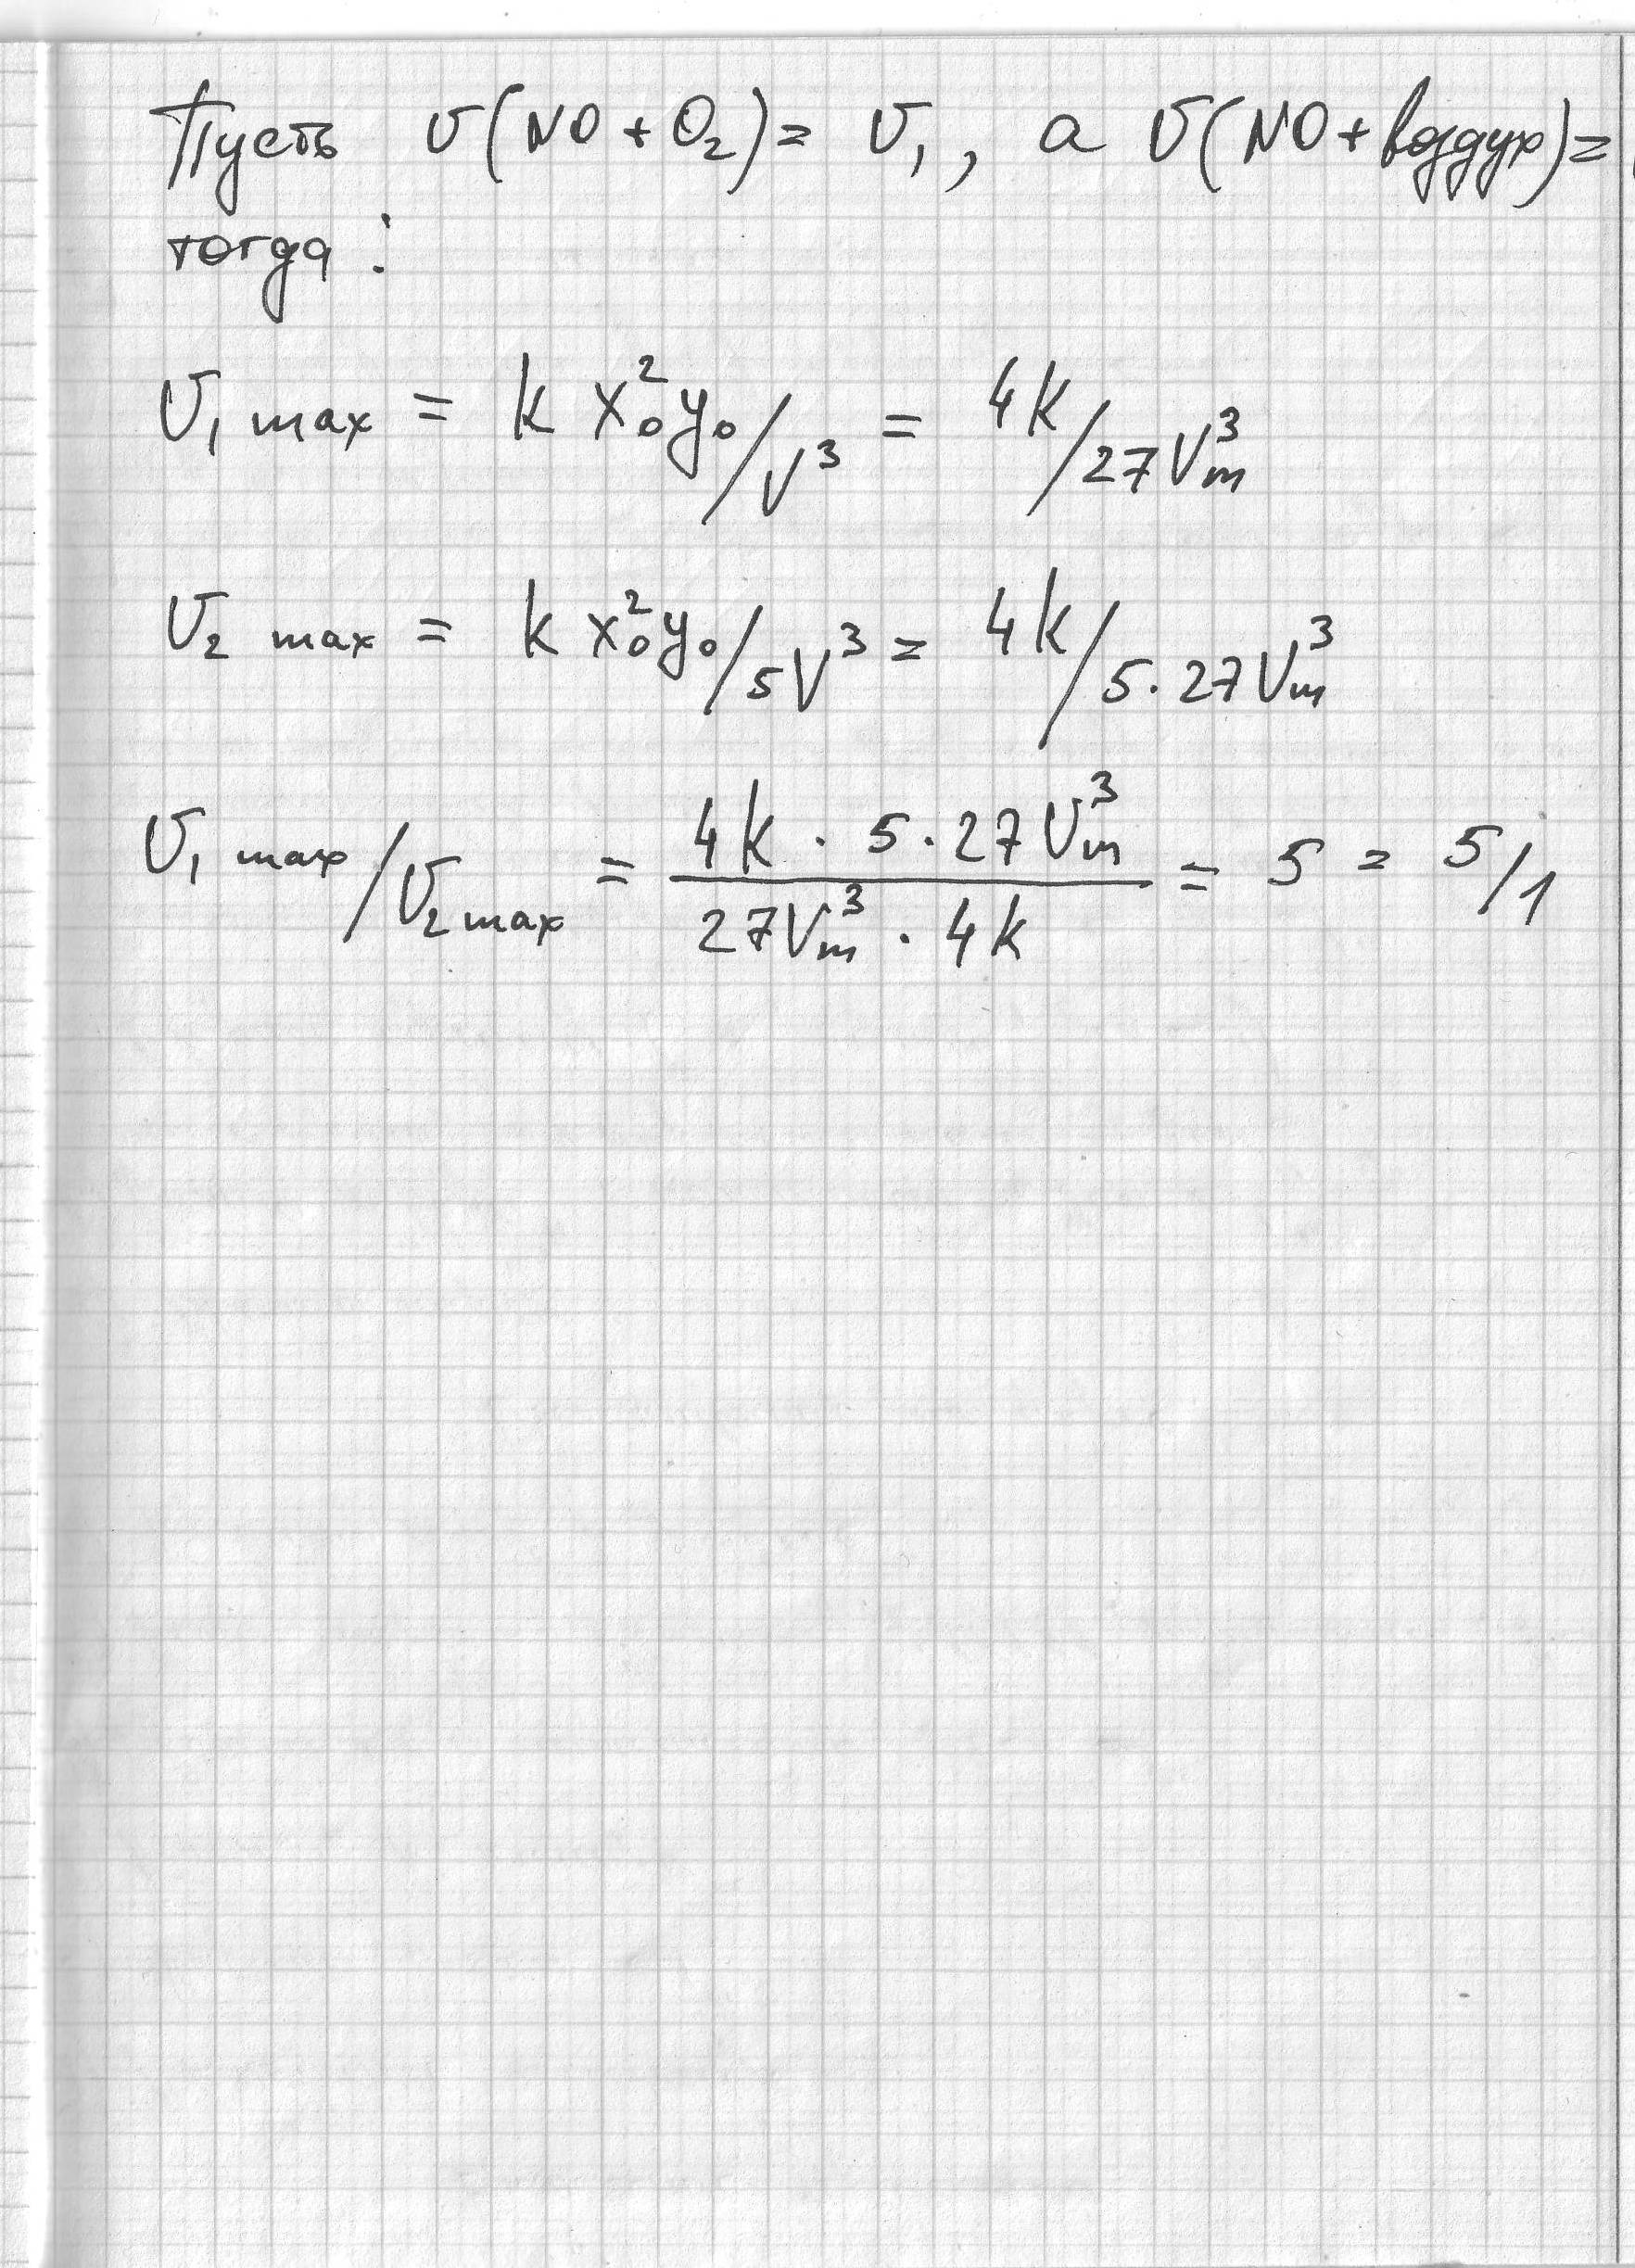 Пусть υ(NO + O₂) = υ₁, а υ(NO + воздух) =
тогда:
υ₁ max = k x₀²y₀/V³ = 4k/27Vm³
υ₂ max = k x₀²y₀/5V³ = 4k/5·27Vm³
υ₁ max/υ₂ max = 4k · 5·27Vm³ / 27Vm³ · 4k = 5 = 5/1